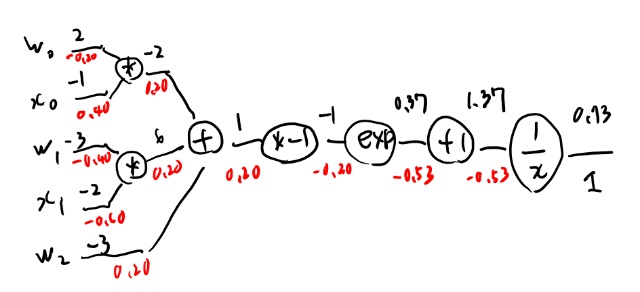 w₀ 2 -0.20
* -2 0.20
x₀ -1 0.40
w₁ -3 -0.40
* 6 0.20
x₁ -2 -0.60
w₂ -3 0.20
+ 1 0.20
*-1 -1 -0.20
exp 0.37 -0.53
+1 1.37 -0.53
1/x 0.73 1